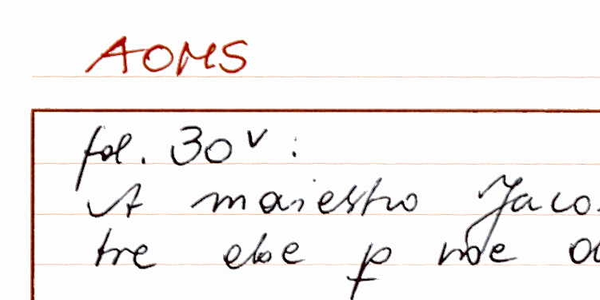 AOMS
fol. 30v:
A maiestro Jaco
tre ebe p